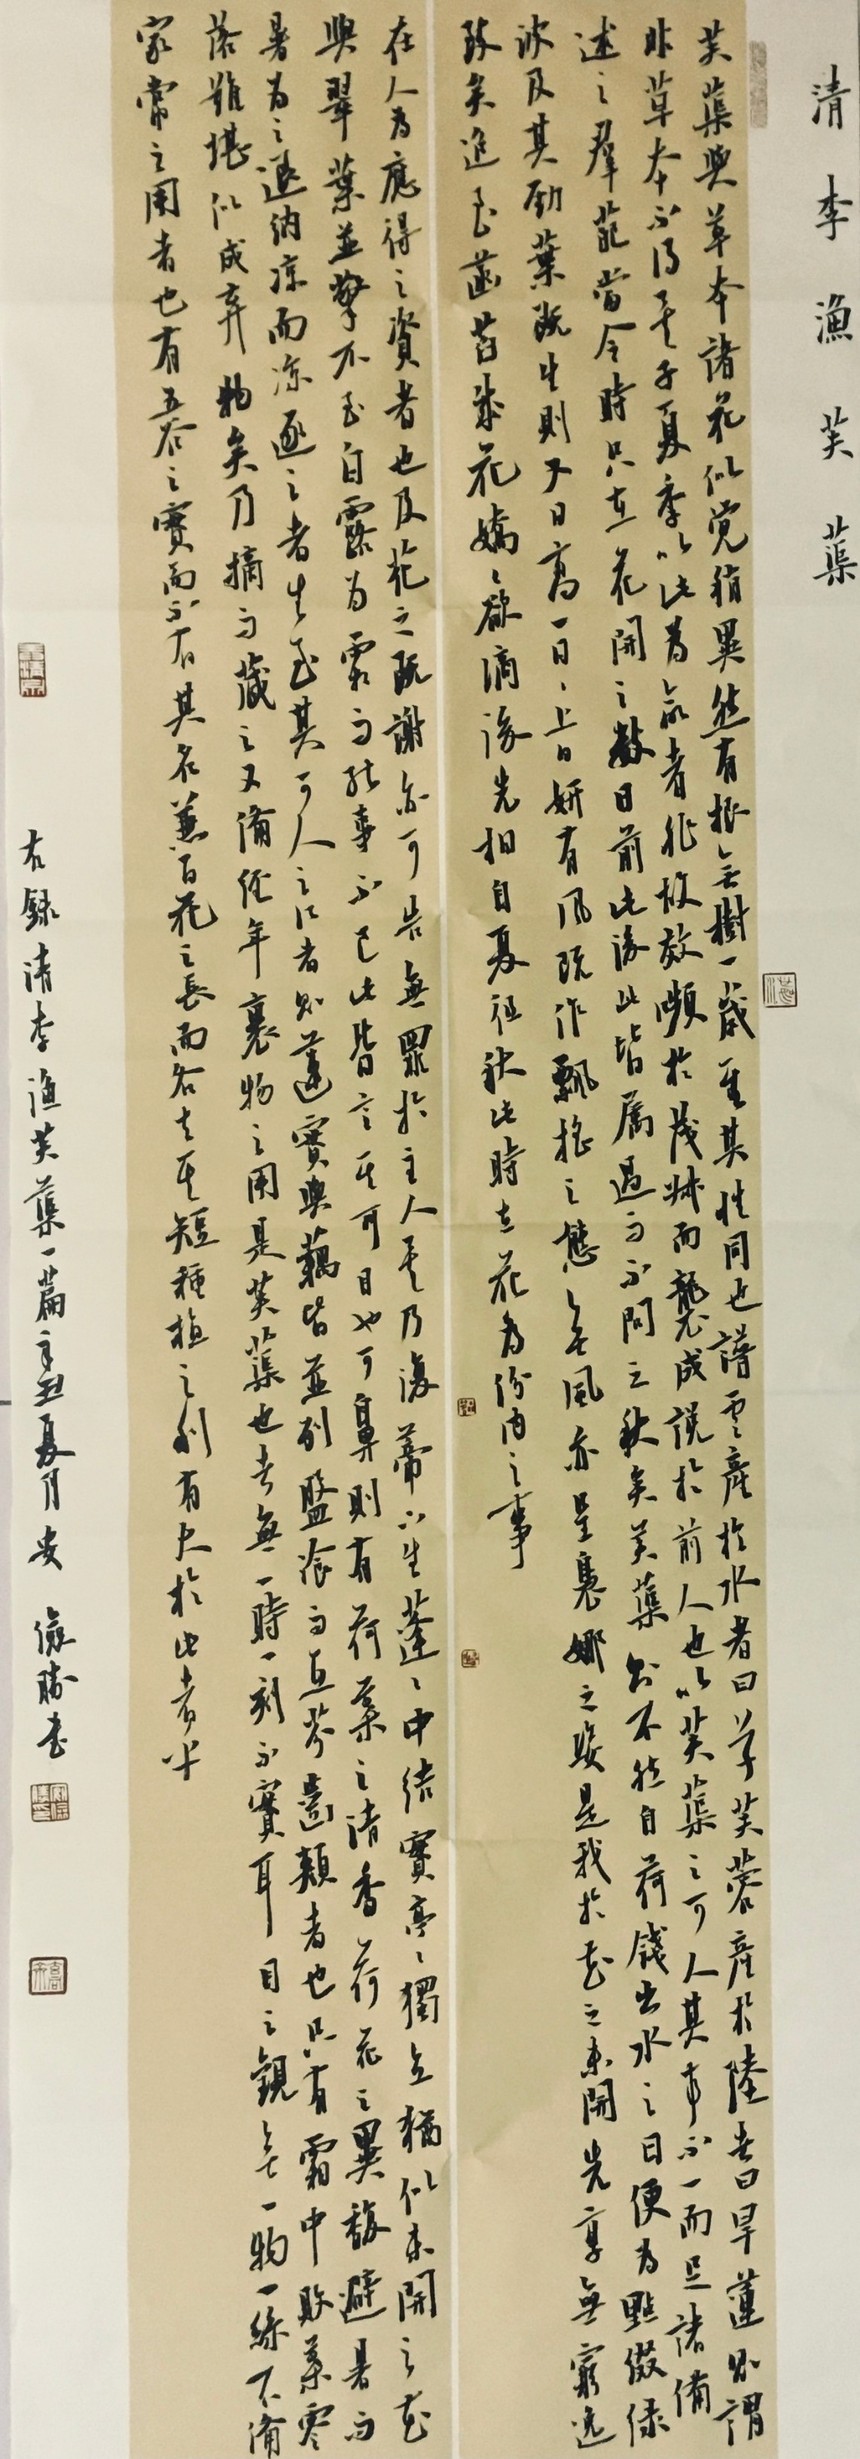 清李漁芙蕖
芙蕖與草本諸花似覺稍異然有根無樹一歲一生其性同也譜云產於水者曰草芙蓉產於陸者曰旱蓮則謂
非草本不得矣予夏季以此為命者非故效顰於茂叔而襲成說於前人也以芙蕖之可人其事不一而足請備
述之羣葩當令時只在花開之數日前此後此皆屬過而不問之秋矣芙蕖則不然自荷錢出水之日便為點綴綠
波及其勁葉既生則又日高一日日上日妍有風既作飄搖之態無風亦呈裊娜之姿是我於花之未開先享無窮逸
致矣迨至菡萏成花嬌嬌欲滴後先相自夏徂秋此時在花為份內之事
在人為應得之資者也及花之既謝亦可告無罪於主人矣乃復蒂下生蓬蓬中結實亭亭獨立猶似未開之花
與翠葉並擎不至白露為霜而能事不已此皆言其可目也可鼻則有荷葉之清香荷花之異馥避暑而
暑為之退納涼而涼逐之者生至其可人之口者則蓮實與藕皆並列盤餐而互芬齒頰者也只有霜中敗葉零
落難堪似成棄物矣乃摘而藏之又備經年裹物之用是芙蕖也者無一時一刻不實耳目之觀無一物一絲不備
家常之用者也有五谷之實而不有其名兼百花之長而各去其短種植之利有大於此者乎
右錄清李漁芙蕖一篇辛丑夏月安 儉勝書